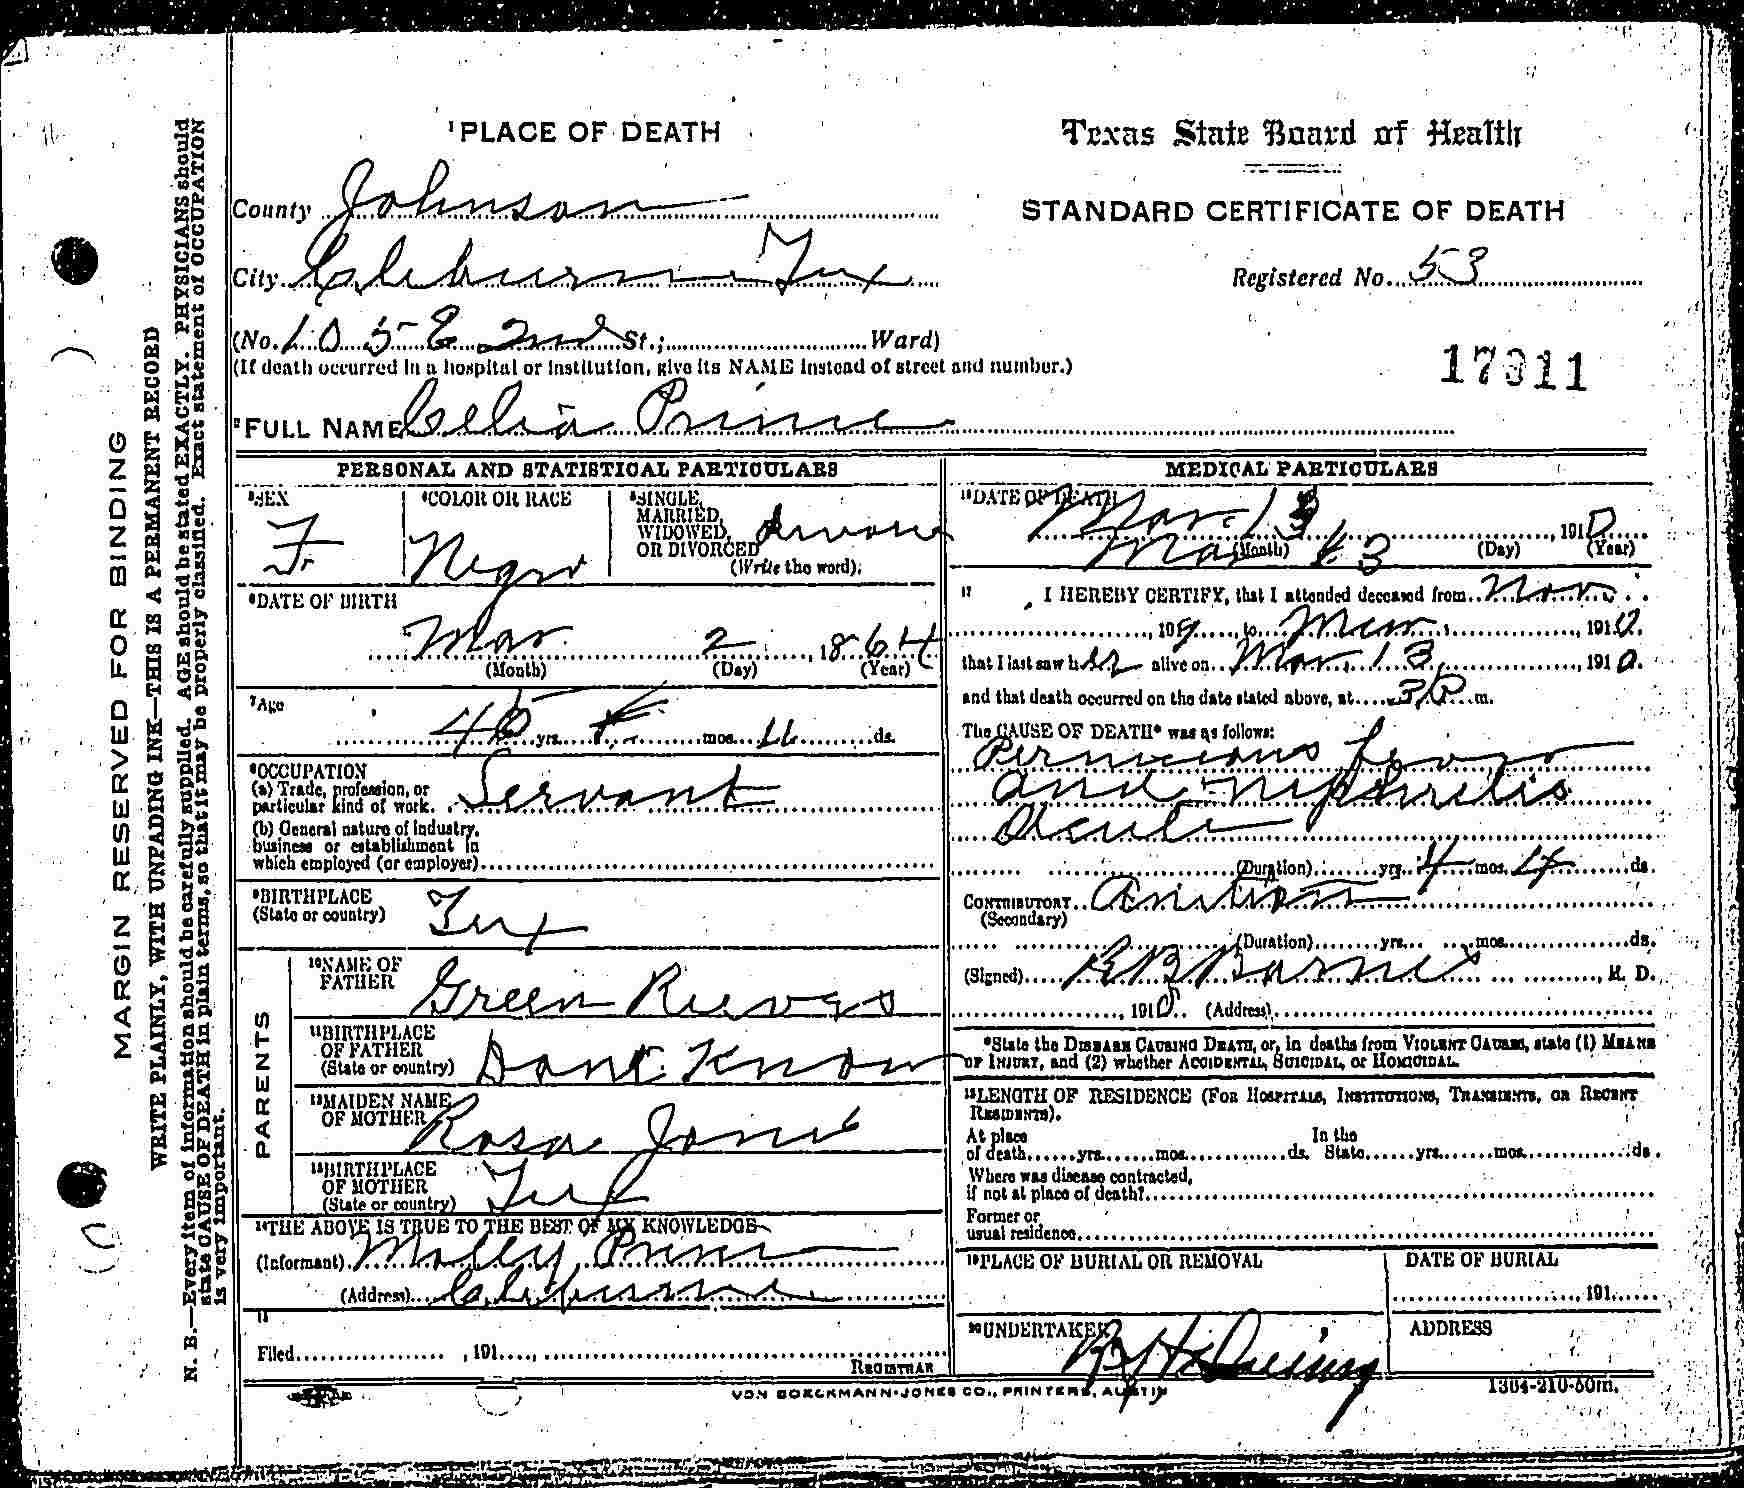 ¹PLACE OF DEATH
County Johnson
City Cleburne Tex
(No. 105 E 2nd St.; Ward)
(If death occurred in a hospital or institution, give its NAME instead of street and number.)
²FULL NAME Celia Prince
Texas State Board of Health
STANDARD CERTIFICATE OF DEATH
Registered No. 53
17911
PERSONAL AND STATISTICAL PARTICULARS
³SEX
F
⁴COLOR OR RACE
Negro
⁵SINGLE,
MARRIED,
WIDOWED,
OR DIVORCED
(Write the word)
⁶DATE OF BIRTH
Mar 2, 1864
(Month) (Day) (Year)
⁷Age
46 yrs. mos. 11 ds.
⁸OCCUPATION
(a) Trade, profession, or
particular kind of work. Servant
(b) General nature of industry,
business or establishment in
which employed (or employer)
⁹BIRTHPLACE
(State or country) Tex
PARENTS
¹⁰NAME OF
FATHER Green Reeves
¹¹BIRTHPLACE
OF FATHER
(State or country) Dont Know
¹²MAIDEN NAME
OF MOTHER Rosa Jones
¹³BIRTHPLACE
OF MOTHER
(State or country) Tex
¹⁴THE ABOVE IS TRUE TO THE BEST OF MY KNOWLEDGE
(Informant) Molly Prince
(Address) Cleburne
15
Filed , 191 ,
REGISTRAR
MEDICAL PARTICULARS
¹⁶DATE OF DEATH
Mar. 13, 1910
Mar 13
(Month) (Day) (Year)
17 I HEREBY CERTIFY, that I attended deceased from Nov.
, 1909, to Mar, 1910.
that I last saw her alive on Mar. 13, 1910.
and that death occurred on the date stated above, at 3 P. m.
The CAUSE OF DEATH* was as follows:
Pernicious fever
and Nephritis
Acute
(Duration) yrs. 4 mos. 14 ds.
CONTRIBUTORY
(Secondary)
(Duration) yrs. mos. ds.
(Signed) R B Barnes, M. D.
, 1910. (Address)
*State the DISEASE CAUSING DEATH, or, in deaths from VIOLENT CAUSES, state (1) MEANS
OF INJURY, and (2) whether ACCIDENTAL, SUICIDAL, OR HOMICIDAL.
¹⁸LENGTH OF RESIDENCE (FOR HOSPITALS, INSTITUTIONS, TRANSIENTS, OR RECENT
RESIDENTS).
At place In the
of death yrs. mos. ds. State yrs. mos. ds.
Where was disease contracted,
if not at place of death?
Former or
usual residence
¹⁹PLACE OF BURIAL OR REMOVAL
DATE OF BURIAL
, 191
²⁰UNDERTAKER
ADDRESS
VON BOECKMANN-JONES CO., PRINTERS, AUSTIN
1364-210-50m.
MARGIN RESERVED FOR BINDING
WRITE PLAINLY, WITH UNFADING INK—THIS IS A PERMANENT RECORD
N. B.—Every item of information should be carefully supplied. AGE should be stated EXACTLY. PHYSICIANS should
state CAUSE OF DEATH in plain terms, so that it may be properly classified. Exact statement of OCCUPATION
is very important.